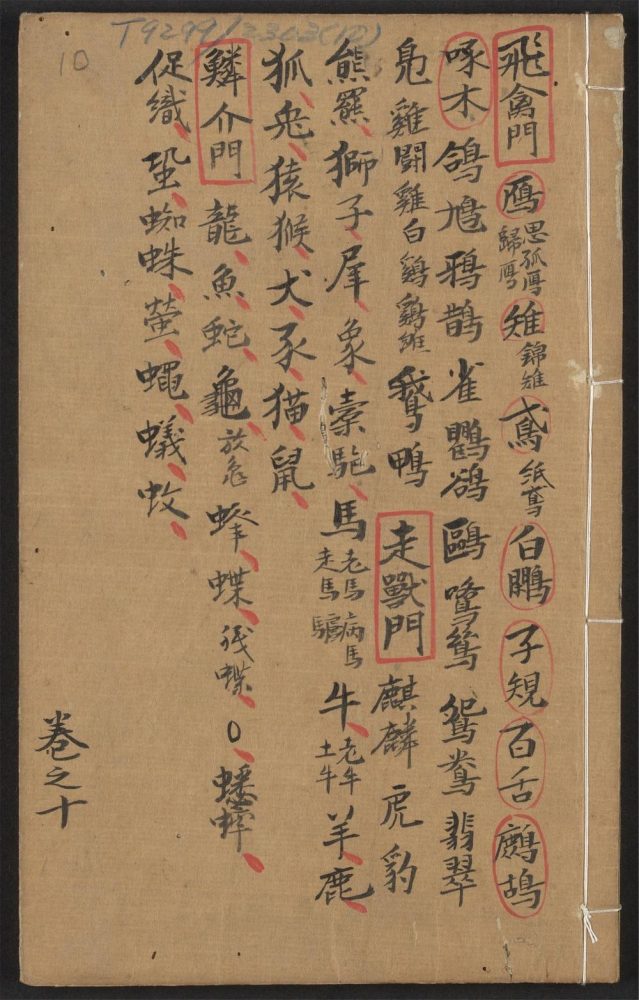 T9299/2303(10)
10
飛禽門 鴈 思孤鴈 歸鴈 雉 錦雉 鳶 紙鳶 白鷴 子規 百舌 鷓鴣
啄木 鴿 鴆 鴉 鵲 雀 鸜鵒 鷗 鷺鶿 鴛鴦 翡翠
鳧 雞 鬪雞 白鷄 鷄雛 鵞 鴨 走獸門 麒麟 虎 豹
熊羆 獅子 犀 象 橐駞 馬 老馬 病馬 走馬 驢 牛 老牛 土牛 羊 鹿
狐 兎 猿 猴 犬 豕 猫 鼠
鱗介門 龍 魚 蛇 龜 放龜 蜂 蝶 蛺蝶 〇 蟋蟀
促織 蛩 蜘蛛 螢 蠅 蟻 蚊
卷之十